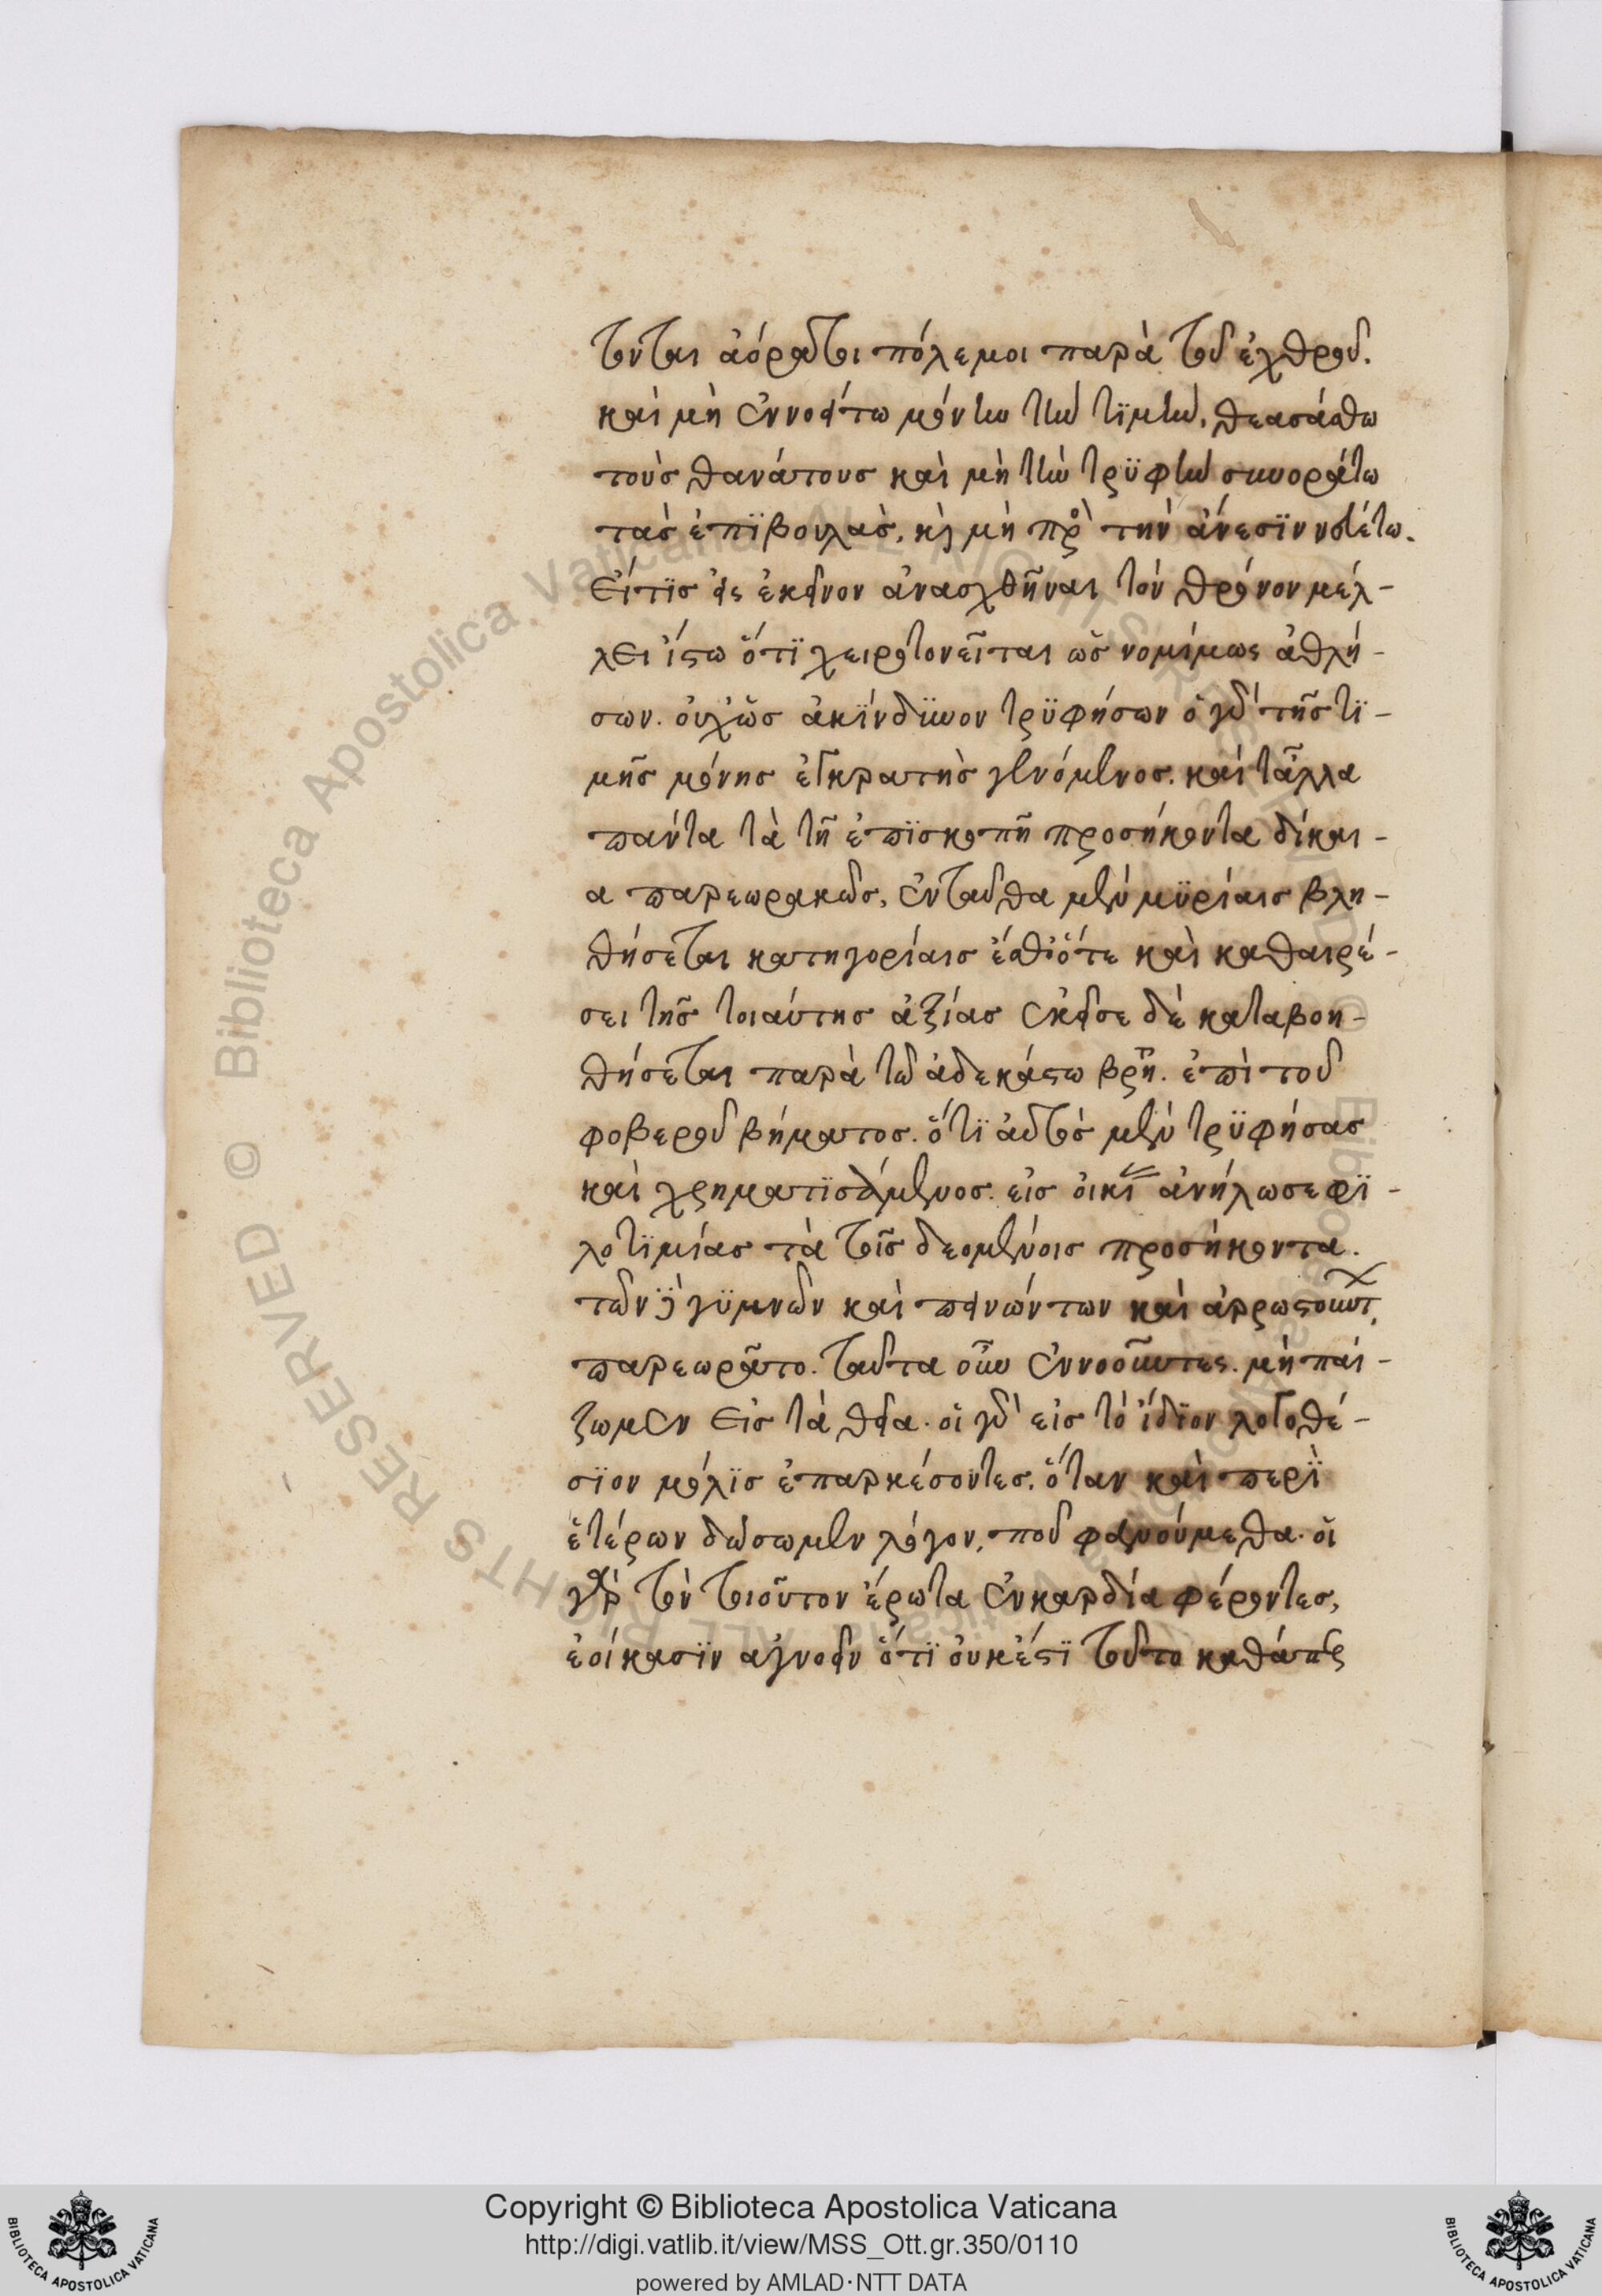 τοῦνται ἀόρατοι πόλεμοι παρὰ τοῦ ἐχθροῦ.
καὶ μὴ ἐννοείτω μόνην τὴν τϊμὴν, θεασάσθω
τοὺς θανάτους καὶ μὴ τὴν τρϋφὴν συνοράτω
τὰς ἐπϊβουλὰς, κὶ μὴ πρὸ τὴν ἄνεσϊν νοείτω.
εἴ τϊς εἰς ἐκεῖνον ἀναχθῆναι τὸν θρόνον μέλ-
λει ἴστω ὅτϊ χειροτονεῖται ὡς νομίμως ἀθλή-
σων. οὐχ ὡς ἀκϊνδϋνον τρϋφήσων ὁ γὰρ τῆς τϊ-
μῆς μόνης ἐγκρατὴς γενόμενος. καὶ τἆλλα
πάντα τὰ τῆ ἐπϊσκοπῆ προσήκοντα δίκαι-
α παρεωρακὼς, ἐνταῦθα μὲν μϋρίαις βλη-
θήσεται κατηγορίαις ἔσθ ὅτε καὶ καθαιρέ-
σει τῆς τοιαύτης ἀξίας ἐκεῖσε δὲ καταβοη-
θήσεται παρὰ τῶ ἀδεκάστω βρῆ. ἐπὶ τοῦ
φοβεροῦ βήματος. ὅτϊ αὐτὸς μὲν τρϋφήσας
καὶ χρηματϊσάμενος. εἰς οἰκϊ ἀνήλωσε φϊ-
λοτϊμίας τὰ τοῖς δεομένοις προσήκοντα.
τῶν δὲ γϋμνῶν καὶ πεινώντων καὶ ἀρρωστούντ,
παρεωρᾶτο. ταῦτα οὖν ἐννοοῦντες. μὴ παί-
ζωμεν εἰς τὰ θεῖα. οἱ γὰρ εἰς τὸ ἴδϊον λογοθέ-
σϊον μόλϊς ἐπαρκέσοντες. ὅταν καὶ περϊ
ἑτέρων δώσωμεν λόγον, ποῦ φανούμεθα. οἱ
γὰρ τὸν τοιοῦτον ἔρωτα ἐν καρδία φέροντες,
ἐοίκασϊν αγνοεῖν ὅτϊ οὐκ έστϊ τοῦτο καθάπερ
Copyright © Biblioteca Apostolica Vaticana
http://digi.vatlib.it/view/MSS_Ott.gr.350/0110
powered by AMLAD·NTT DATA